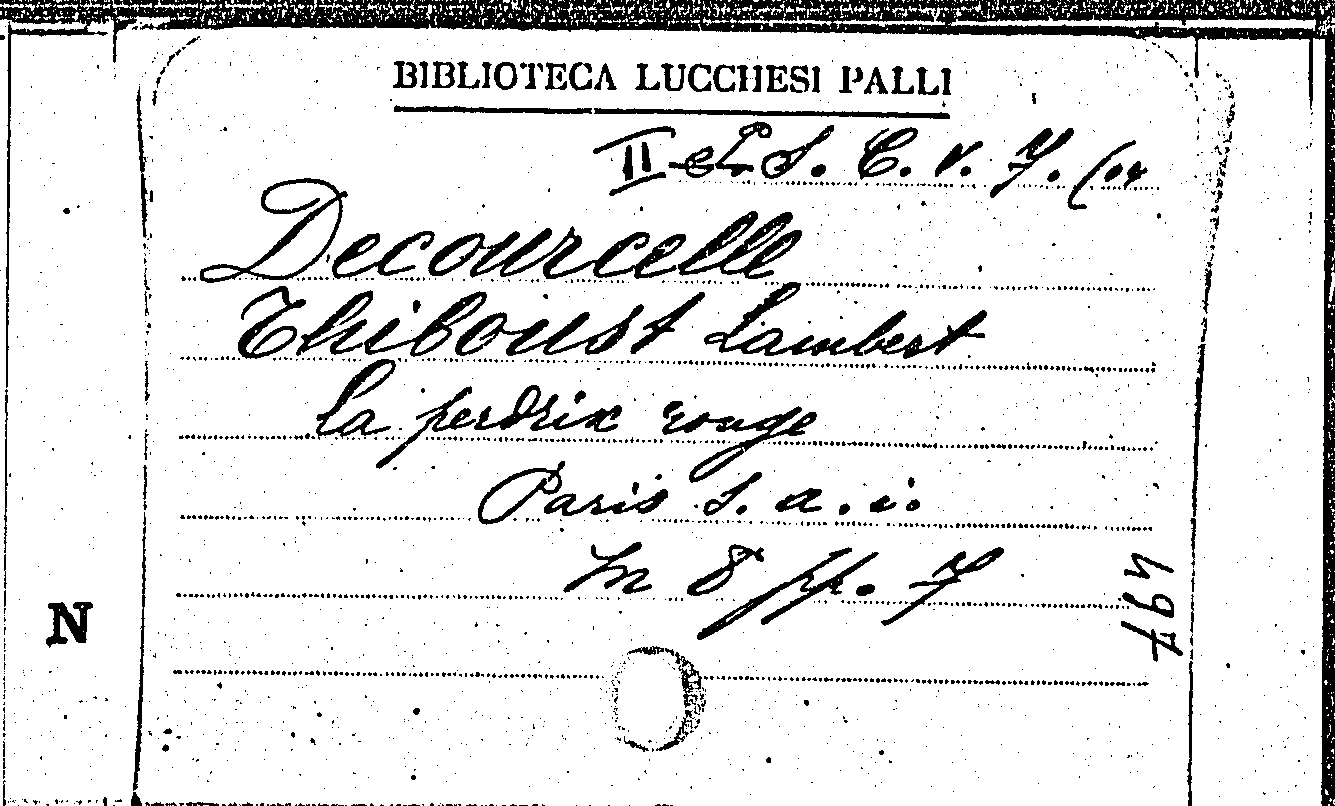 BIBLIOTECA LUCCHESI PALLI
II S. C. V. 7. (
Decourcelle
Thiboust Lambert
La perdrix rouge
Paris s. a. i.
In 8° pp. 7
497
N